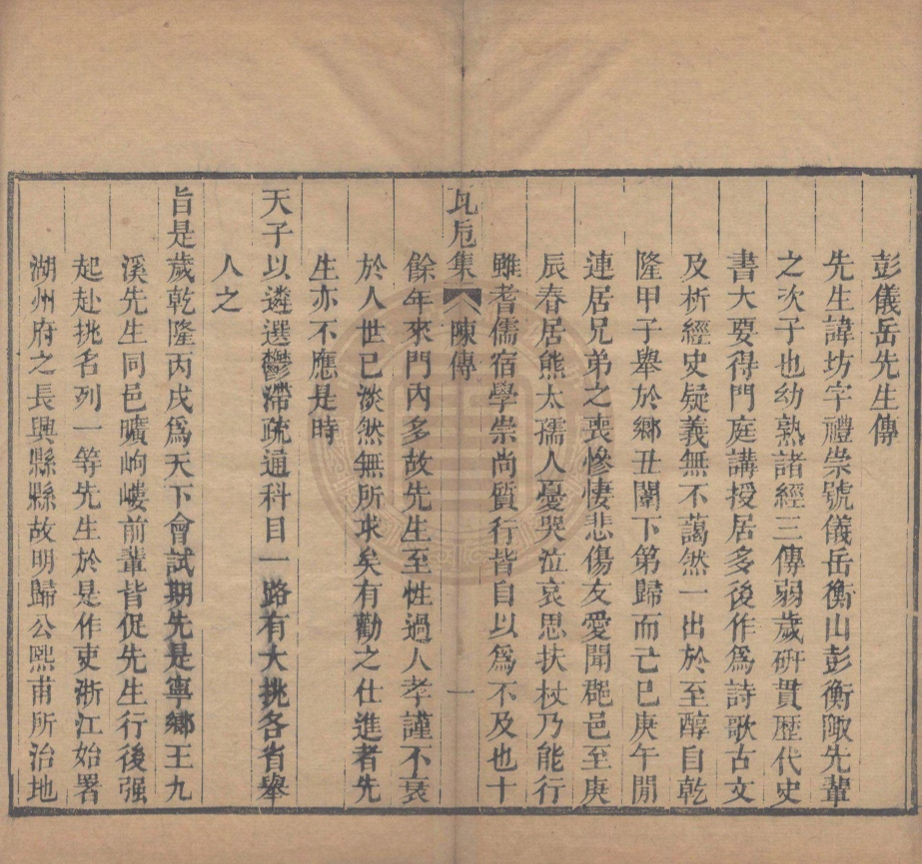 彭儀岳先生傳
先生諱坊字禮崇號儀岳衡山彭衡陬先輩
之次子也幼熟諸經三傳弱歲硏貫歷代史
書大要得門庭講授居多後作爲詩歌古文
及析經史疑義無不藹然一出於至醇自乾
隆甲子舉於鄉丑闈下第歸而己巳庚午閒
連居兄弟之喪慘悽悲傷友愛聞郡邑至庚
辰春居熊太孺人憂哭泣哀思扶杖乃能行
雖耆儒宿學崇尚質行皆自以爲不及也十
瓦卮集 陳傳 一
餘年來門內多故先生至性過人孝謹不衰
於人世已淡然無所求矣有勸之仕進者先
生亦不應是時
天子以遴選鬱滯疏通科目一路有大挑各省舉
人之
旨是歲乾隆丙戌爲天下會試期先是寧鄉王九
溪先生同邑曠岣嶁前輩皆促先生行後强
起赴挑名列一等先生於是作吏浙江始署
湖州府之長興縣縣故明歸公熙甫所治地